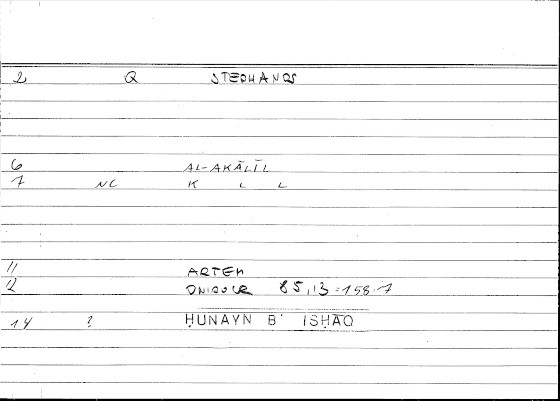 2 Q STEPHANOS
6 AL-AKĀLĪL
7 NC K L L
11 ARTEM
12 ONIROCR 85,13 = 158.7
14 ? ḤUNAYN B' ISḤĀQ